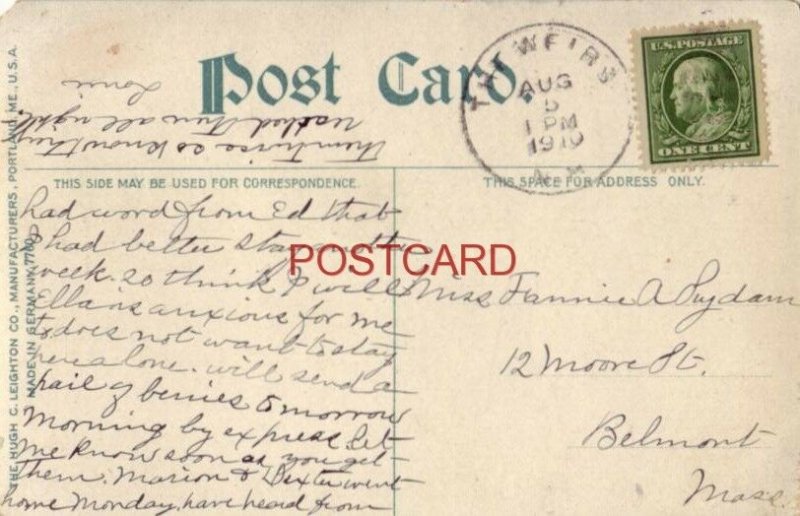 Post Card.
THE WEIRS
AUG
5
1 PM
1910
N.H.
U.S. POSTAGE
ONE CENT
THIS SIDE MAY BE USED FOR CORRESPONDENCE.
THIS SPACE FOR ADDRESS ONLY.
THE HUGH C. LEIGHTON CO., MANUFACTURERS, PORTLAND, ME., U.S.A.
MADE IN GERMANY.
had word from Ed that
I had better stay another
week. so think I will
Ella is anxious for me
to does not want to stay
here alone. will send a
pail of berries tomorrow
morning by express. Let
me know soon as you get
them. Marion & Dexter went
home Monday, have heard from
them twice so know they
reached there all right.
Louie
POSTCARD
Miss Fannie A Suydam
12 Moore St.
Belmont
Mass.